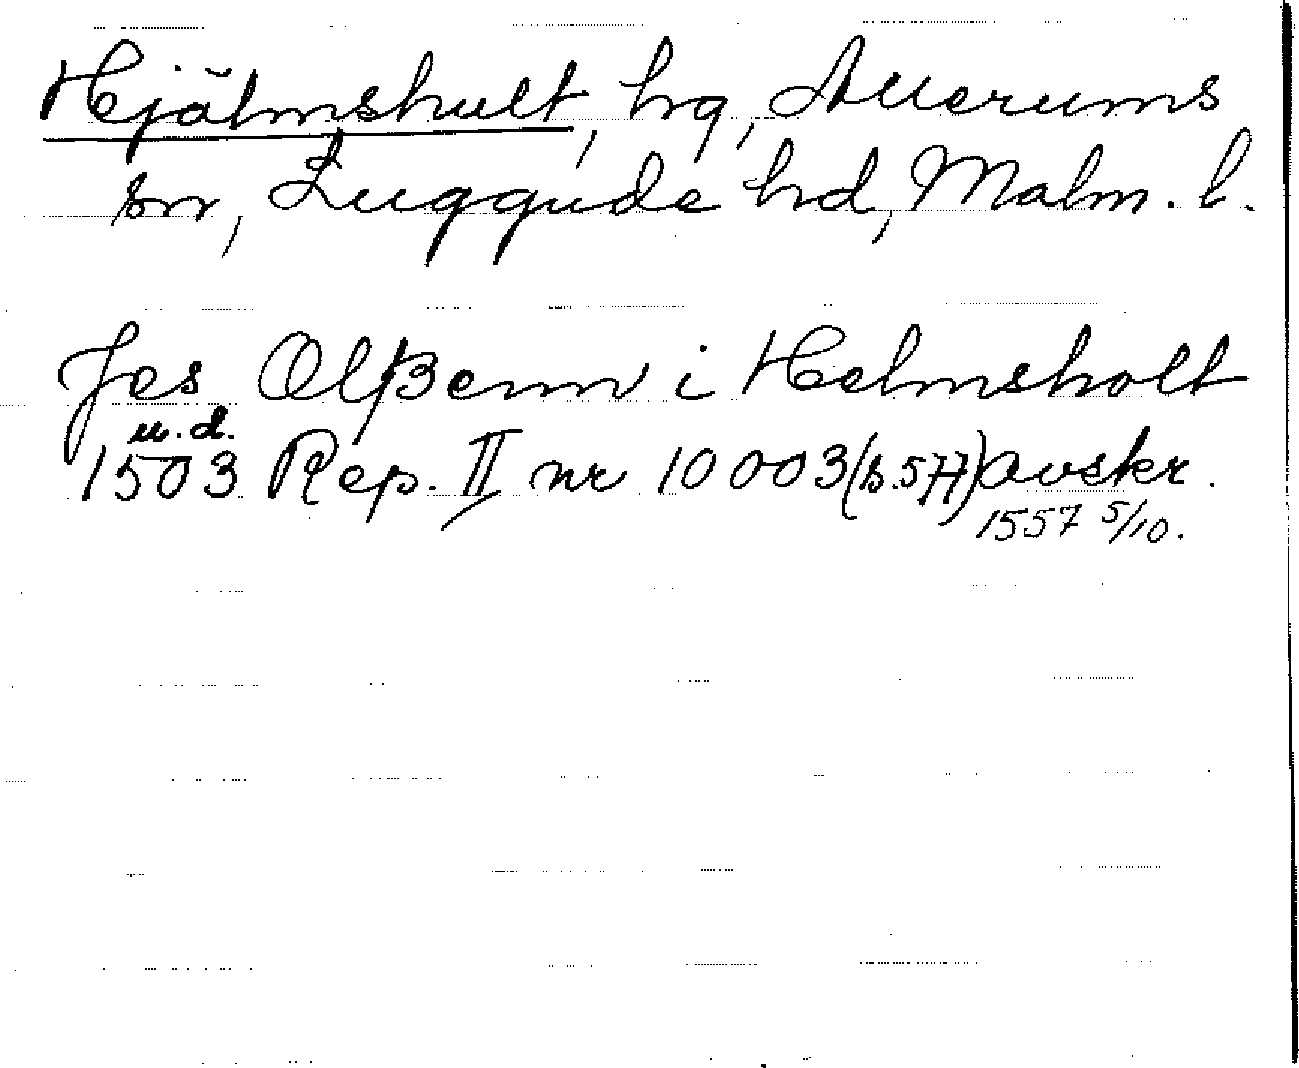 Hjälmshult, hg, Allerums
sn, Luggude hd, Malm. l.
Jes Olßenn i Helmsholt
u.d.
1503 Rep. II nr 10003 (s. 577) avskr.
1557 5/10.